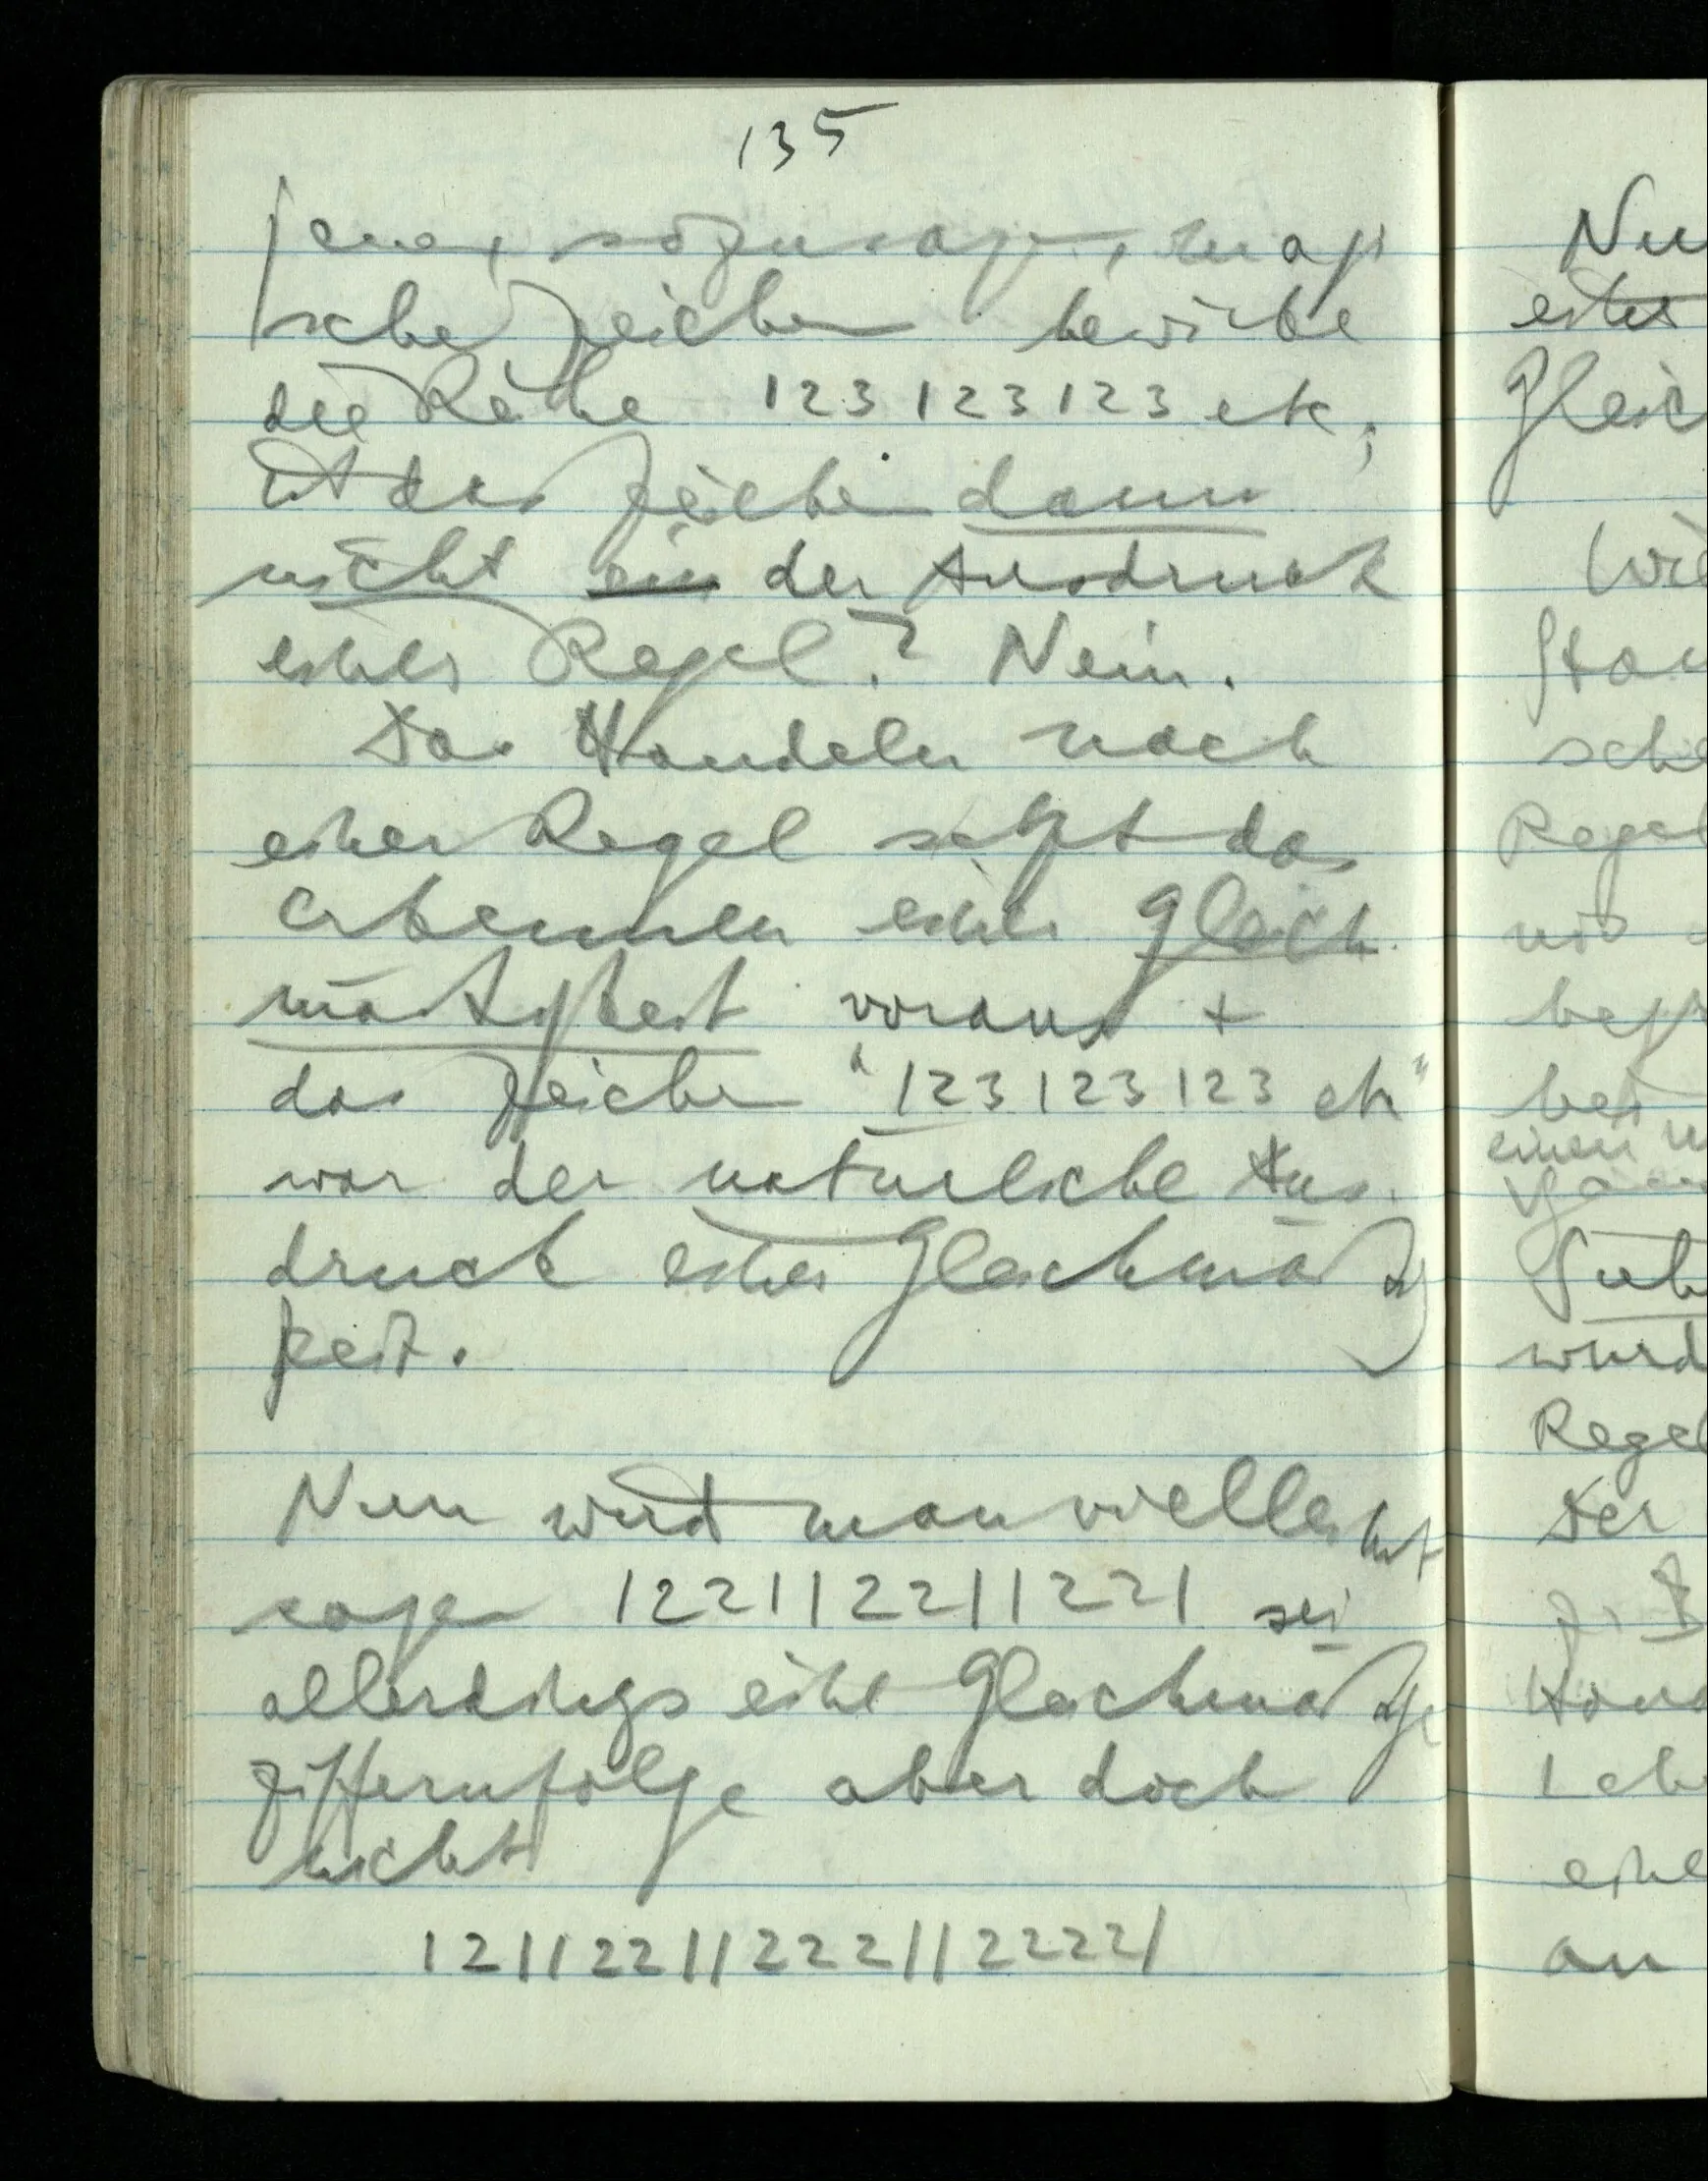 135
jenes, sozusagen, magi
sche Zeichen bewirke
die Reihe 123123123 etc,
ist das Zeichen dann
nicht ein der Ausdruck
einer Regel? Nein.
Das Handeln nach
einer Regel setzt das
Erkennen einer Gleich
mäßigkeit voraus +
das Zeichen "123123123 etc"
war der natürliche Aus-
druck einer Gleichmäßig
keit.
Nun wird man vielleicht
sagen 122112211221 sei
allerdings eine Gleichmäßige
Ziffernfolge aber doch
nicht
121122112221122221
Nu
einer
Gleic
Wie
sche
Regel
mit
bei
einen
wurd
Regel
Der
eine
an